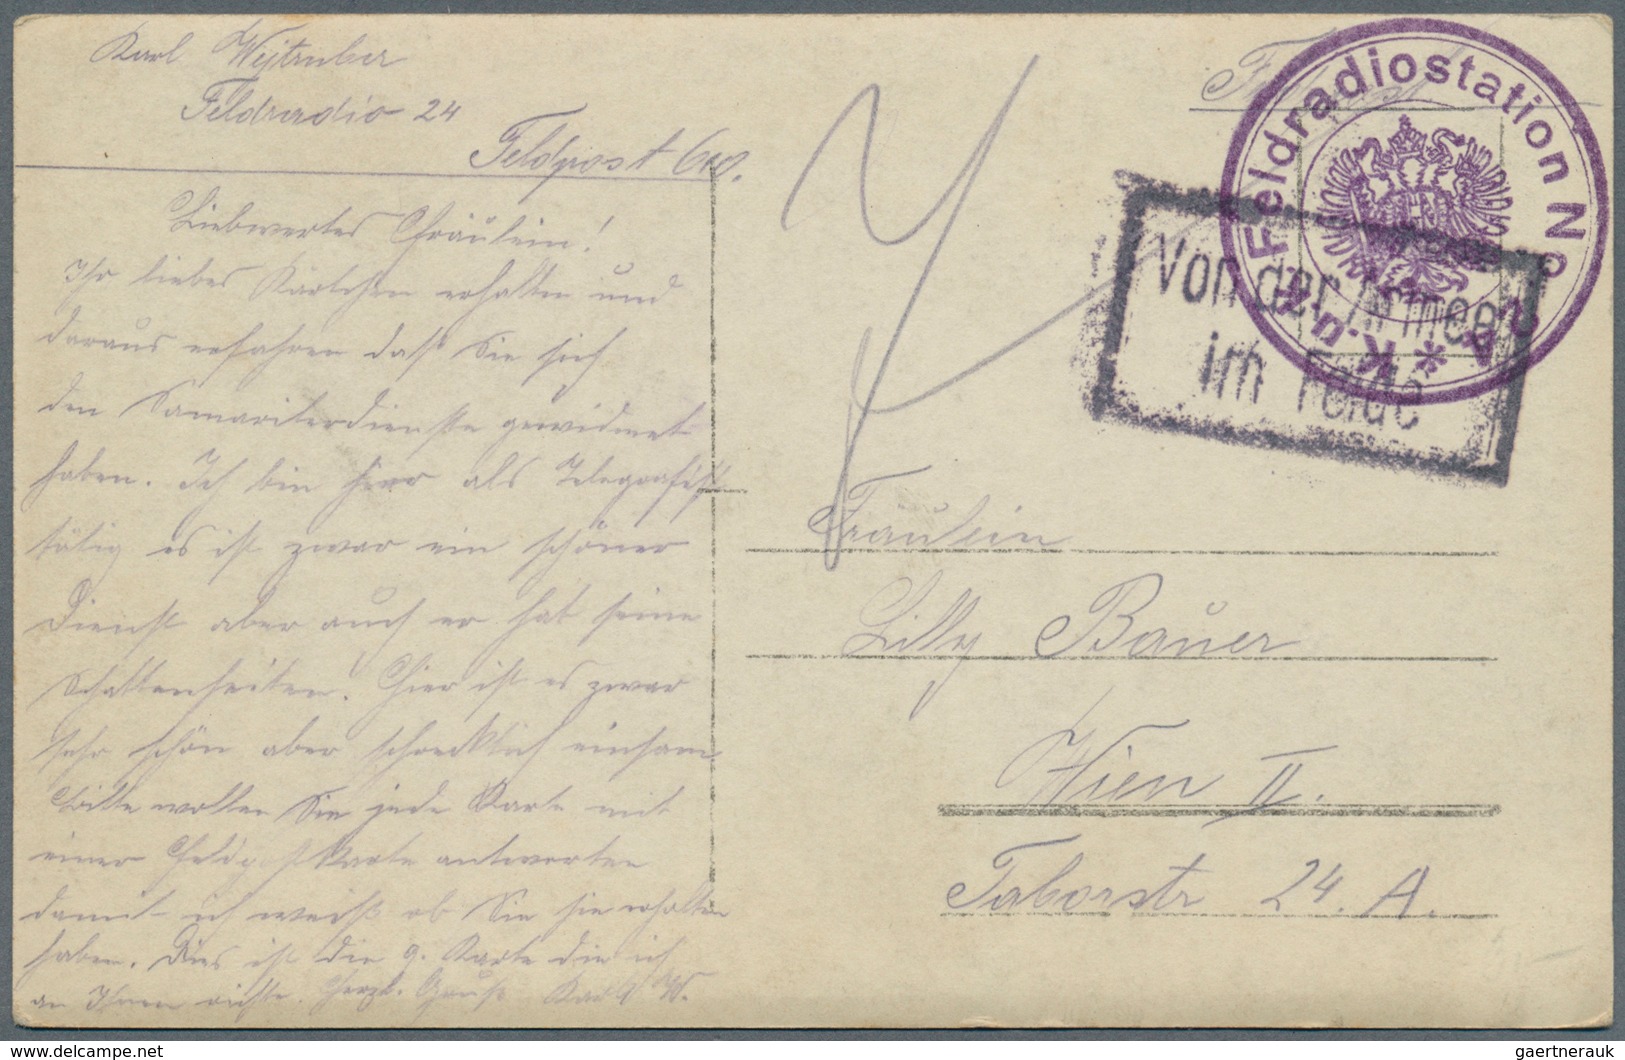 Karl Wejtruber
Feldradio 24
Feldpost 610.
Liebwertes Fräulein!
Ihr liebes Kärtchen erhalten und
daraus erfahren daß Sie sich
den Samariterdienste gewidmet
haben. Ich bin hier als Telegrafist
tätig es ist zwar ein schöner
Dienst aber auch er hat seine
Schattenseiten. Hier ist es zwar
sehr schön aber schrecklich einsam.
Bitte wollen Sie jede Karte mit
einer Feldpostkarte antworten
damit ich weiß ob Sie sie erhalten
haben. Dies ist die 9. Karte die ich
an Ihnen richte. Herzl. Gruß Karl W.
K.u.K. Feldradiostation No 24
Von der Armee
im Felde
Fräulein
Lilly Bauer
Wien II.
Taborstr 24. A.
gaertnerauk @ delcampe.net